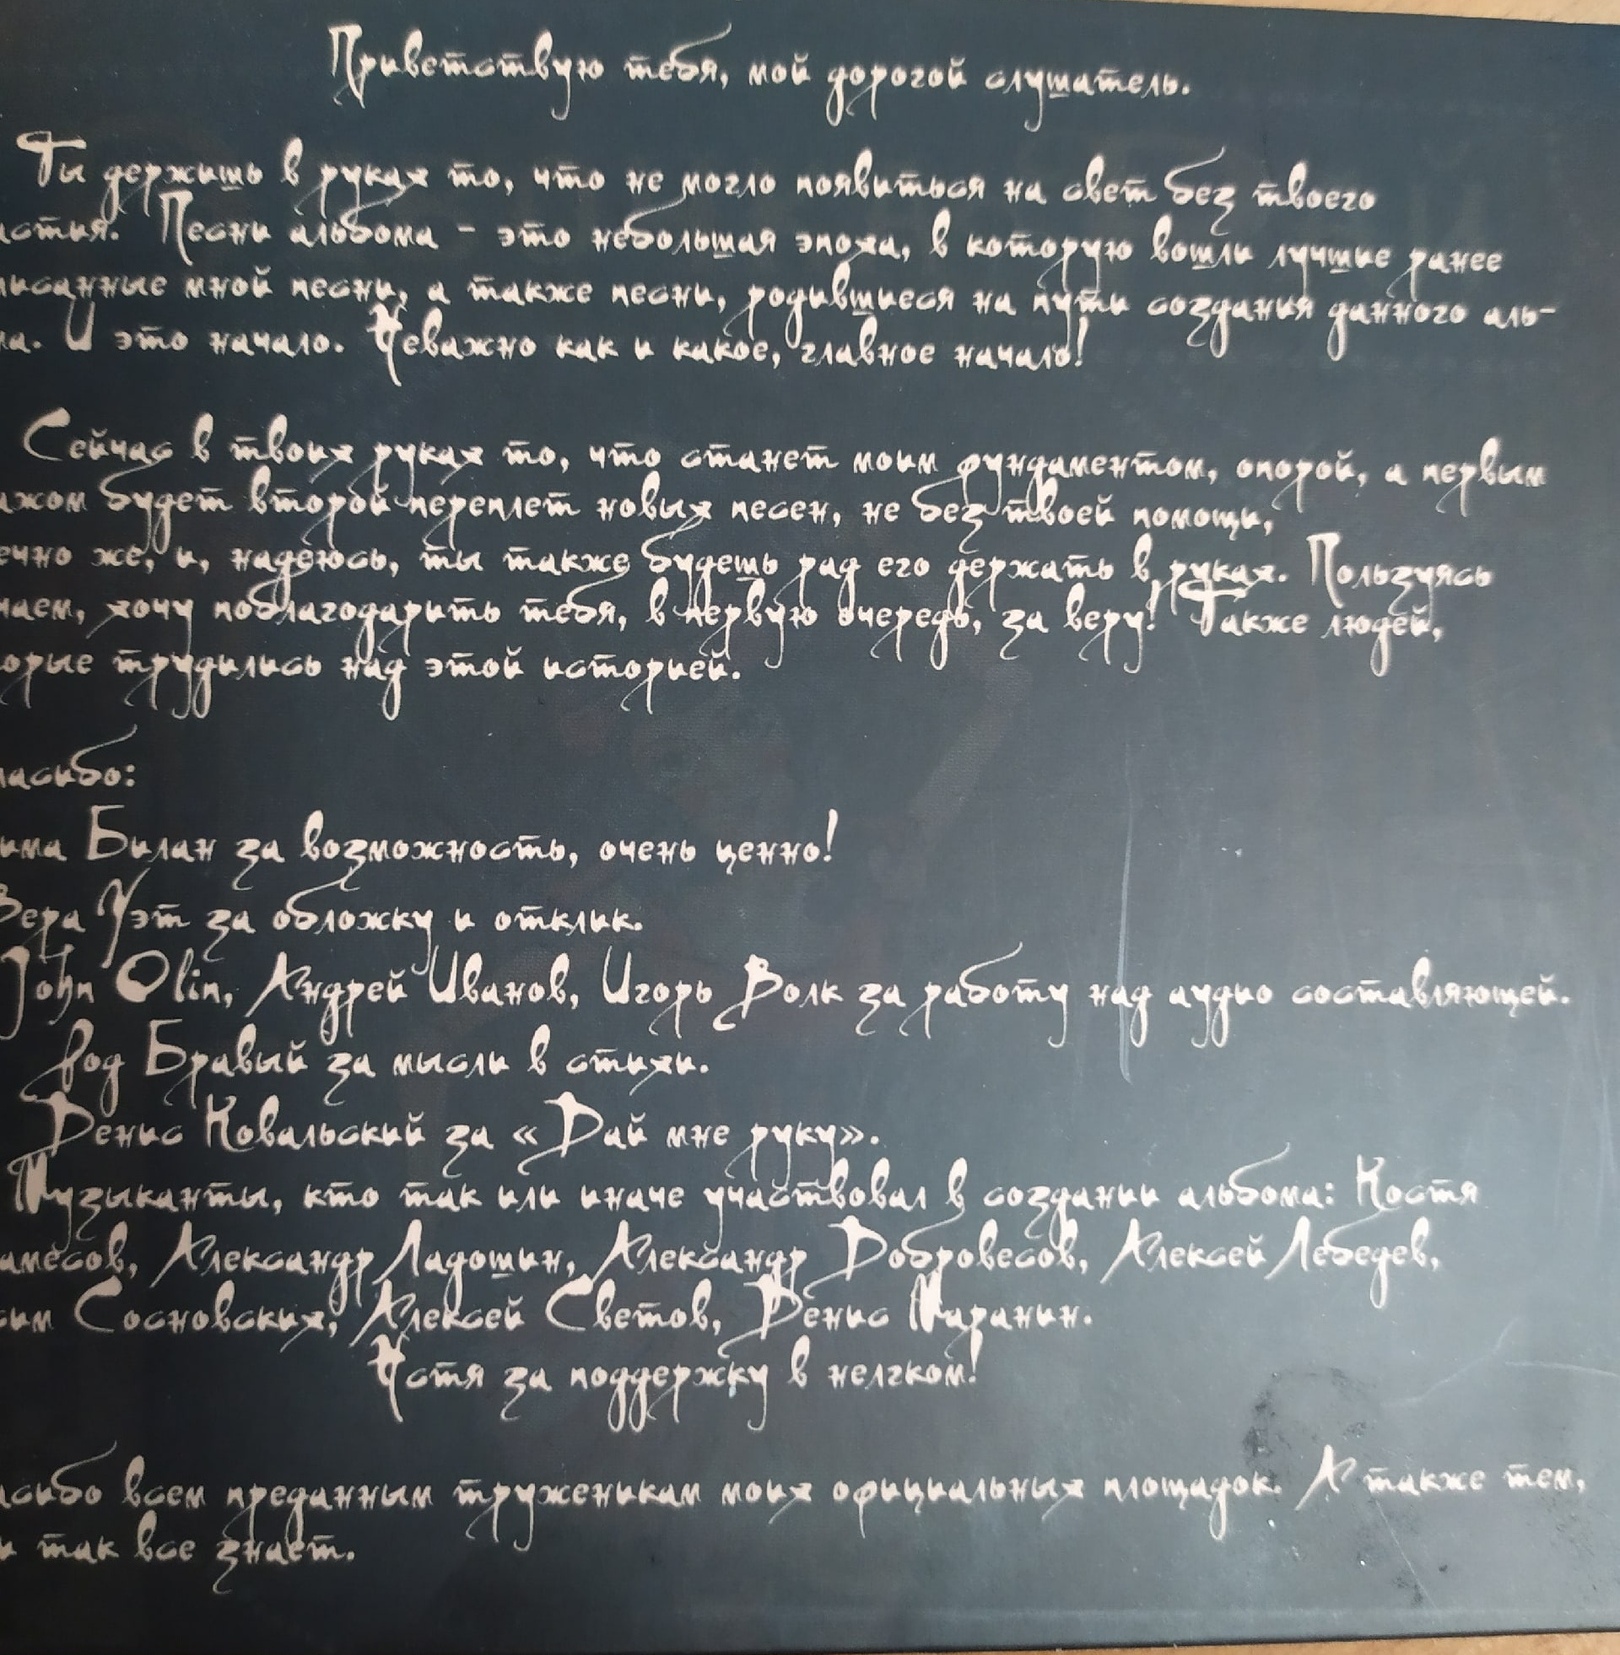 Приветствую тебя, мой дорогой слушатель.
Ты держишь в руках то, что не могло появиться на свет без твоего
астия. Песни альбома - это небольшая эпоха, в которую вошли лучшие ранее
писанные мной песни, а также песни, родившиеся на пути создания данного аль-
ма. И это начало. Неважно как и какое, главное начало!
Сейчас в твоих руках то, что станет моим фундаментом, опорой, а первым
ажом будет второй переплет новых песен, не без твоей помощи,
ечно же, и, надеюсь, ты также будешь рад его держать в руках. Пользуясь
чаем, хочу поблагодарить тебя, в первую очередь, за веру! Также людей,
орые трудились над этой историей.
пасибо:
има Билан за возможность, очень ценно!
Вера Уэт за обложку и отклик.
John Olin, Андрей Иванов, Игорь Волк за работу над аудио составляющей.
Род Бравый за мысли в стихи.
Денис Ковальский за «Дай мне руку».
Музыканты, кто так или иначе участвовал в создании альбома: Костя
амёсов, Александр Ладошин, Александр Добровесов, Алексей Лебедев,
сим Сосновских, Алексей Светов, Денис Маранин.
Настя за поддержку в нелгком!
асибо всем преданным труженикам моих официальных площадок. А также тем,
и так все знает.